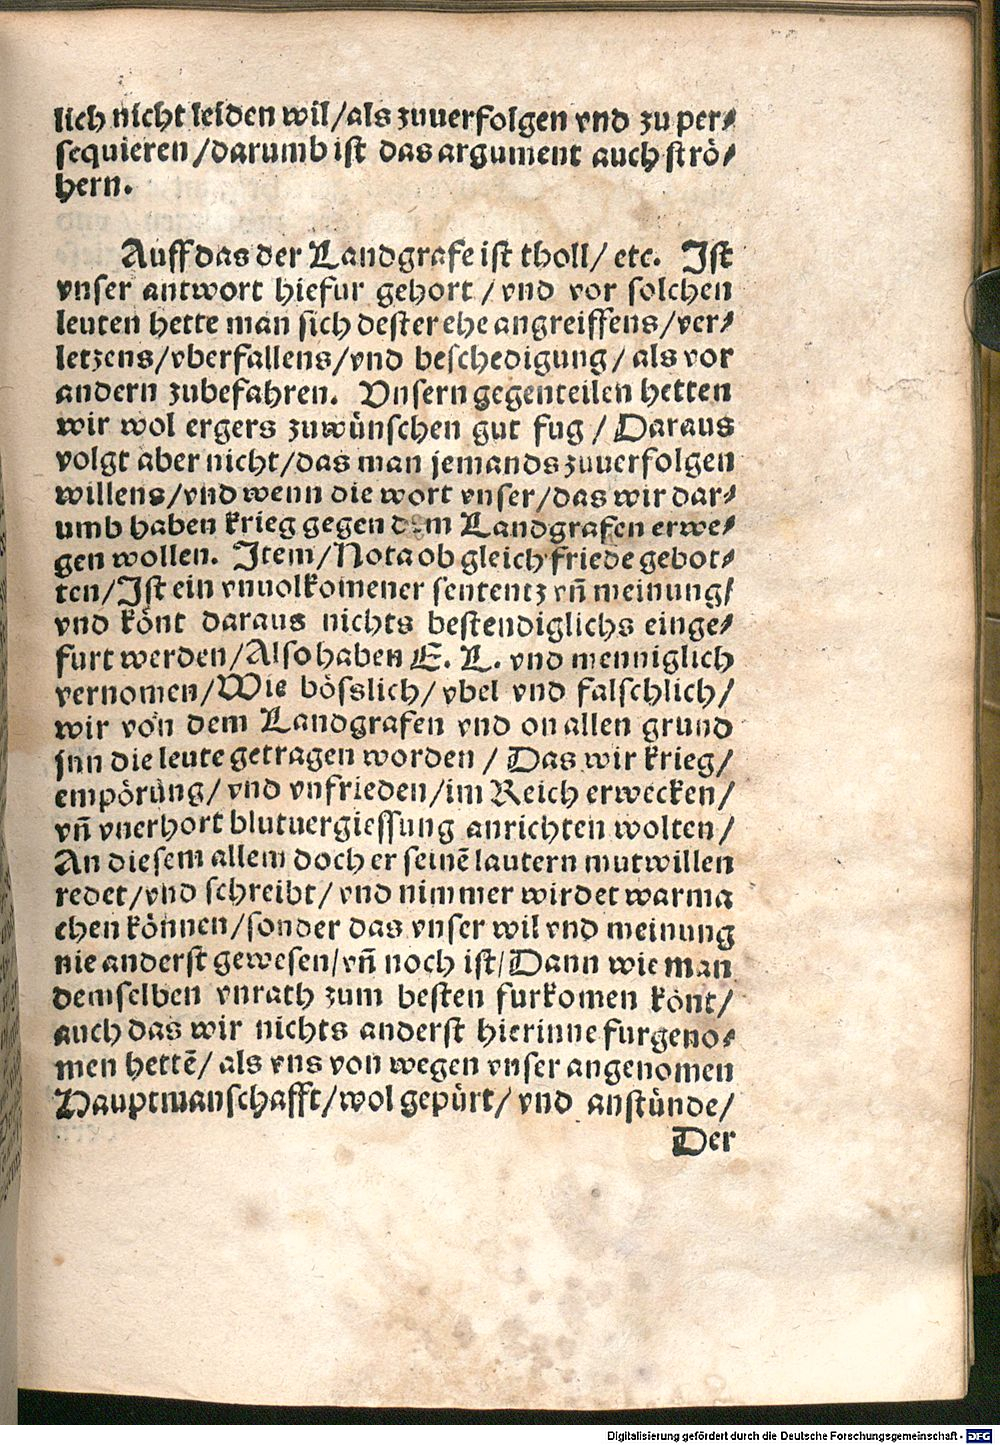 lich nicht leiden wil/als zuuerfolgen vnd zu per⸗
sequieren/darumb ist das argument auch strö⸗
hern.
Auff das der Landgrafe ist tholl/ etc. Ist
vnser antwort hiefur gehort/vnd vor solchen
leuten hette man sich dester ehe angreiffens/ver⸗
letzens/vberfallens/vnd beschedigung/als vor
andern zubefahren. Vnsern gegenteilen hetten
wir wol ergers zuwünschen gut fug/Daraus
volgt aber nicht/das man jemands zuuerfolgen
willens/vnd wenn die wort vnser/das wir dar⸗
umb haben krieg gegen dem Landgrafen erwe⸗
gen wollen. Item/Nota ob gleich friede gebot⸗
ten/Ist ein vnuolkomener sententz vñ meinung/
vnd könt daraus nichts bestendiglichs einge⸗
furt werden/Also haben E. L. vnd menniglich
vernomen/Wie bösslich/vbel vnd falschlich/
wir von dem Landgrafen vnd on allen grund
jnn die leute getragen worden/Das wir krieg/
empörung/vnd vnfrieden/im Reich erwecken/
vñ vnerhort blutuergiessung anrichten wolten/
An diesem allem doch er seinē lautern mutwillen
redet/vnd schreibt/vnd nimmer wirdet warma
chen können/sonder das vnser wil vnd meinung
nie anderst gewesen/vñ noch ist/Dann wie man
demselben vnrath zum besten furkomen könt/
auch das wir nichts anderst hierinne furgeno⸗
men hettē/als vns von wegen vnser angenomen
Hauptmanschafft/wol gepürt/vnd anstünde/
Der
Digitalisierung gefördert durch die Deutsche Forschungsgemeinschaft - DFG